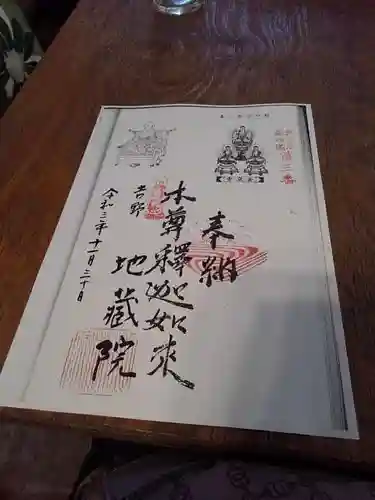 奉納
本尊釋迦如来
吉野
地蔵院
令和三年十一月三十日
第三番